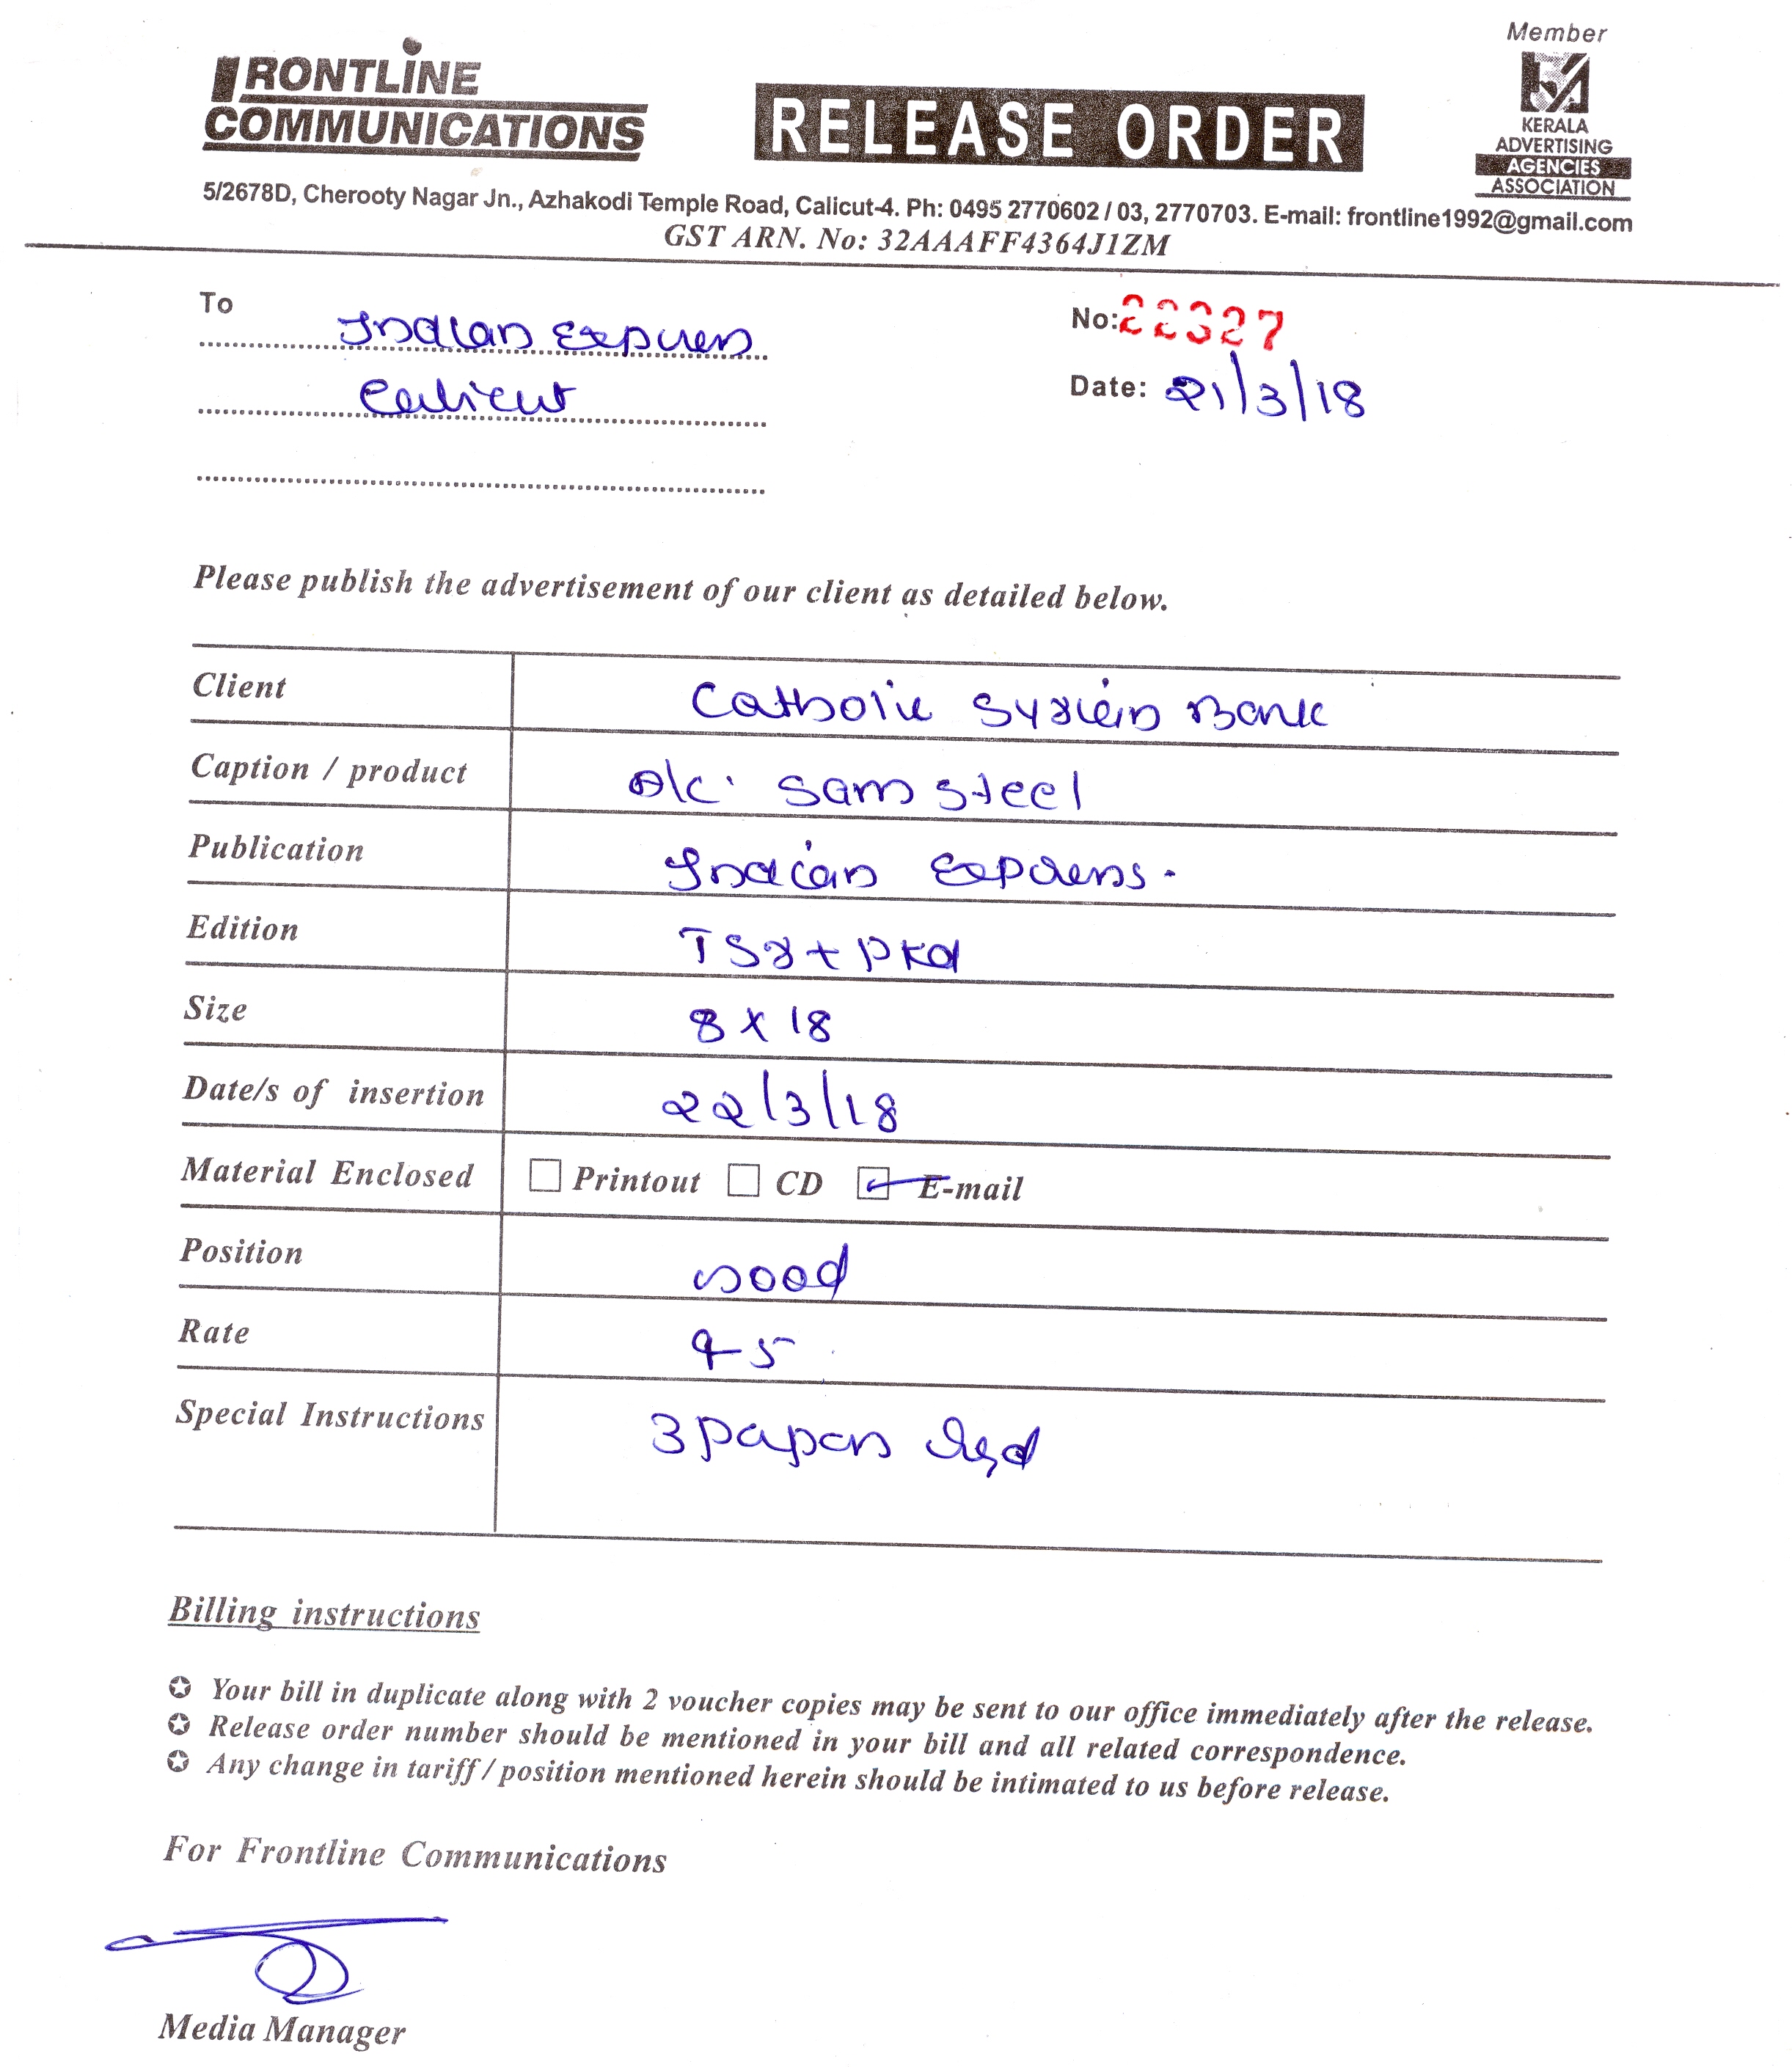 Member
FRONTLINE
COMMUNICATIONS
RELEASE ORDER
KERALA
ADVERTISING
AGENCIES
ASSOCIATION
5/2678D, Cherooty Nagar Jn., Azhakodi Temple Road, Calicut-4. Ph: 0495 2770602 / 03, 2770703. E-mail: frontline1992@gmail.com
GST ARN. No: 32AAAFF4364J1ZM
To Indian Express
Calicut
No: 22327
Date: 21/3/18
Please publish the advertisement of our client as detailed below.
Client Catholic Syrien Bank
Caption / product A/c. Sam Steel
Publication Indian Express.
Edition TSR + PKD
Size 8 x 18
Date/s of insertion 22/3/18
Material Enclosed Printout CD E-mail
Position Good
Rate 95
Special Instructions 3 papers
Billing instructions
✪ Your bill in duplicate along with 2 voucher copies may be sent to our office immediately after the release.
✪ Release order number should be mentioned in your bill and all related correspondence.
✪ Any change in tariff / position mentioned herein should be intimated to us before release.
For Frontline Communications
Media Manager